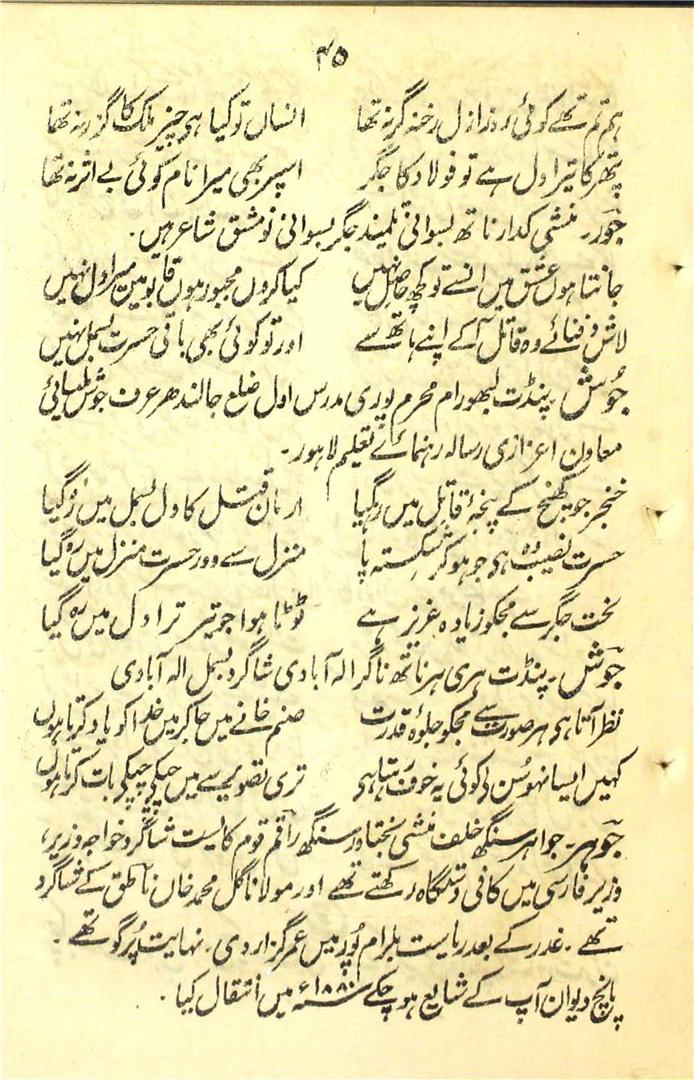 ۴۵
ہم تم تھے کوئی روز ازل رخنہ گر نہ تھا انساں تو کیا ہی چیز ملک کا گزر نہ تھا
پتھر کا تیرا دل ہے تو فولاد کا جگر اسپر بھی میرا نام کوئی بے اثر نہ تھا
جور۔ منشی کدار ناتھ بسوانی تلمیند جگر بسوانی نومشق شاعر ہیں۔
جانتا ہوں عشق میں انسے تو کچھ حاصل نہیں کیا کروں مجبور ہوں قابو میں میرا دل نہیں
لاش دفنائے وہ قاتل آکے اپنے ہاتھ سے اور تو کوئی بھی باقی حسرت بسمل نہیں
جوش۔ پنڈت لبھورام محرم پوری مدرس اول ضلع جالندھر عرف جوش ملسیانی
معاون اعزازی رسالہ رہنمائے تعلیم لاہور۔
خنجر جو کھنچ کے پنجۂ قاتل میں رہگیا ارمان قتل کا دل بسمل میں رہ گیا
حسرت نصیب وہ ہی جو ہو کر شکستہ پا منزل سے دور حسرت منزل میں رہ گیا
لخت جگر سے مجکو زیادہ عزیز ہے ٹوٹا ہوا جو تیر ترا دل میں رہ گیا
جوش۔ پنڈت ہری ہر ناتھ ناگر الہ آبادی شاگرد بسمل الہ آبادی
نظر آتا ہی ہر صورت سے مجکو جلوۂ قدرت صنم خانے میں جاکر میں خدا کو یاد کرتا ہوں
کہیں ایسا نہو سُن لی کوئی یہ خوف رہتا ہی تری تصویر سے میں چپکے چپکے بات کرتا ہوں
جوہر۔ جواہر سنگھ خلف منشی بختاور سنگھ راقم قوم کایست شاگرد خواجہ وزیر،
وزیر فارسی میں کافی دستگاہ رکھتے تھے اور مولانا گل محمد خاں ناطق کے شاگرد
تھے۔ غدر کے بعد ریاست بلرام پُور میں عمر گزار دی۔ نہایت پُر گو تھے۔
پانچ دیوان آپ کے شایع ہو چکے ۱۸۸۰ء میں انتقال کیا۔